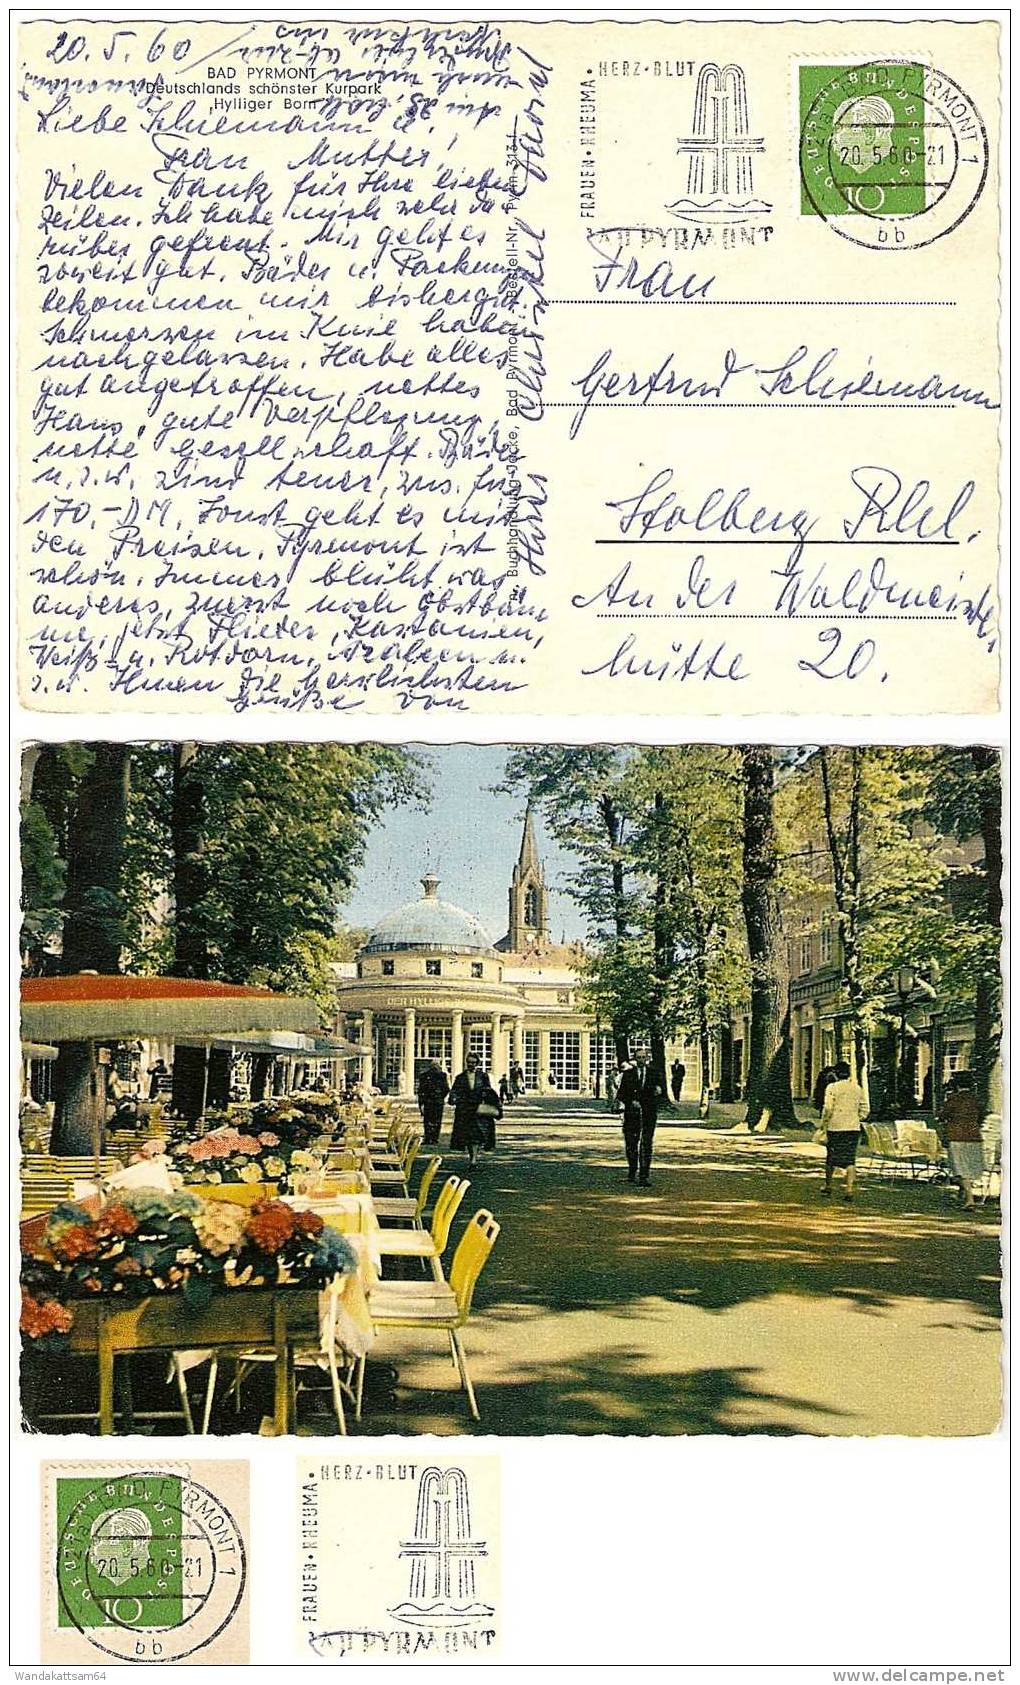 20.5.60
BAD PYRMONT
Deutschlands schönster Kurpark
Hylliger Born
Liebe Schiemann u.
Frau Mutter!
Vielen Dank für Ihre lieben
Zeilen. Ich habe mich sehr da-
rüber gefreut. Mir geht es
soweit gut. Bäder u. Packungen
bekommen mir bisher gut.
Schmerzen im Knie haben
nachgelassen. Habe alles
gut angetroffen, nettes
Haus, gute Verpflegung,
nette Gesellschaft. Bäder
u.s.w. sind teuer, zus. für
170,-DM, sonst geht es mit
den Preisen. Pyrmont ist
schön. Immer blüht was
anderes, zuerst noch Obstbäu-
me, jetzt Flieder, Kastanien,
Weiß- u. Rotdorn, Azaleen u.
s.w. Ihnen die herzlichsten
Grüße von
Buchhandlung Jacke, Bad Pyrmont Bestell-Nr. Pyrm 313
FRAUEN·RHEUMA·HERZ·BLUT
BAD PYRMONT
DEUTSCHE BUNDESPOST
10
BAD PYRMONT 1
20.5.60-21
bb
Frau
Gertrud Schiemann
Stolberg Rhl.
An der Waldmeister
hütte 20.
DER HYLLIGE
DEUTSCHE BUNDESPOST
10
BAD PYRMONT 1
20.5.60-21
bb
FRAUEN·RHEUMA·HERZ·BLUT
BAD PYRMONT
Wandakattsam64